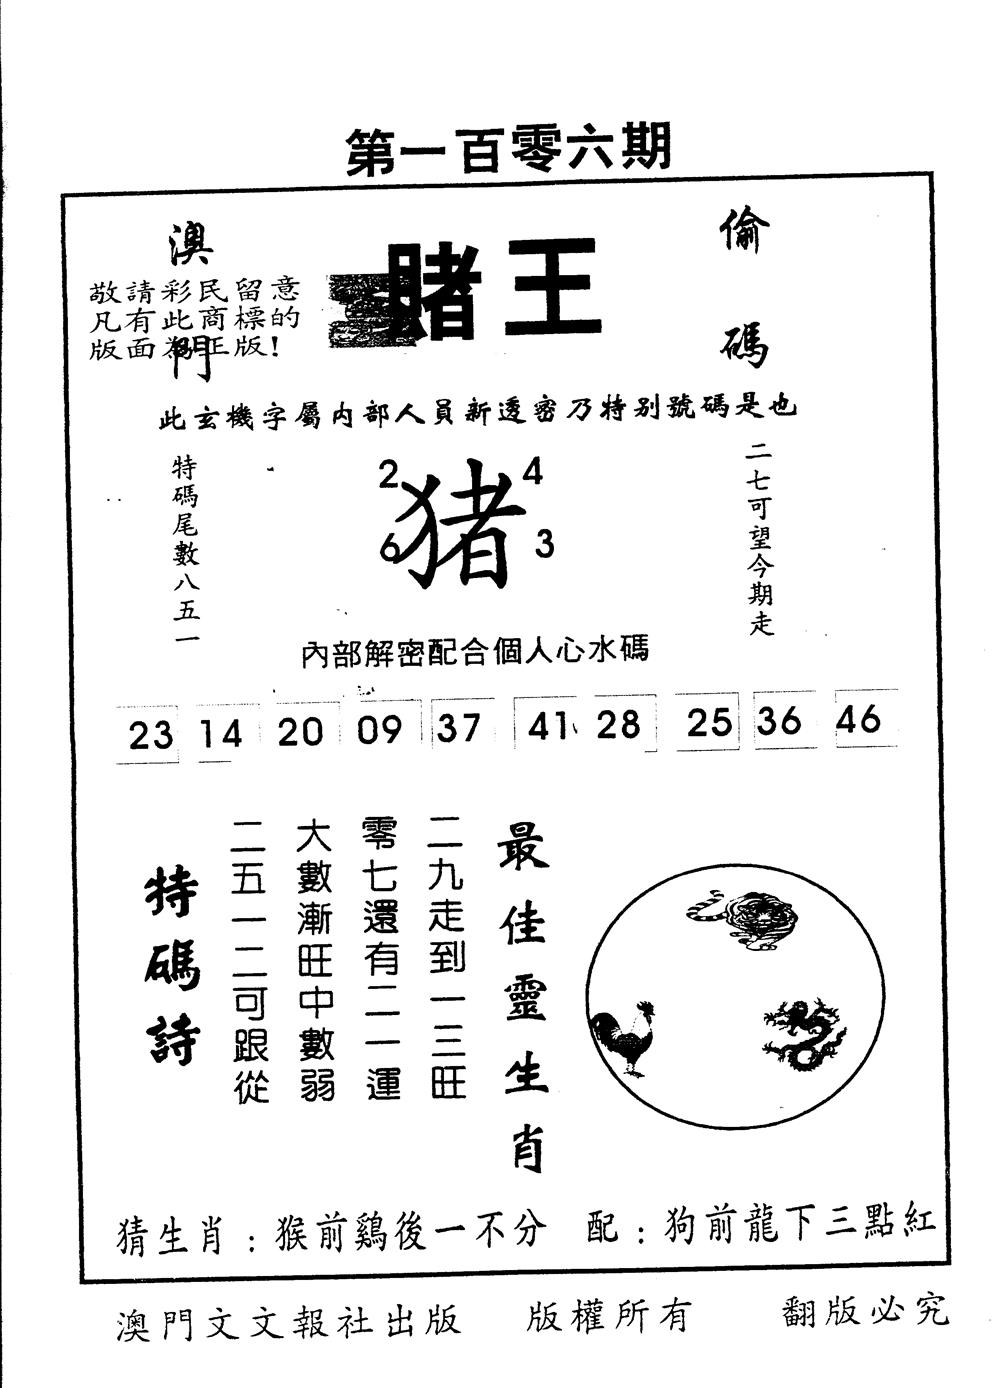 第一百零六期
澳門
賭王
偷碼
敬請彩民留意
凡有此商標的
版面為正版!
此玄機字屬内部人員新透密乃特别號碼是也
特碼尾數八五一
2 4
猪
6 3
二七可望今期走
內部解密配合個人心水碼
23 14 20 09 37 41 28 25 36 46
最佳靈生肖
二九走到一三旺
零七還有二一運
大數漸旺中數弱
二五一二可跟從
特碼詩
猜生肖:猴前鷄後一不分 配:狗前龍下三點紅
澳門文文報社出版 版權所有 翻版必究